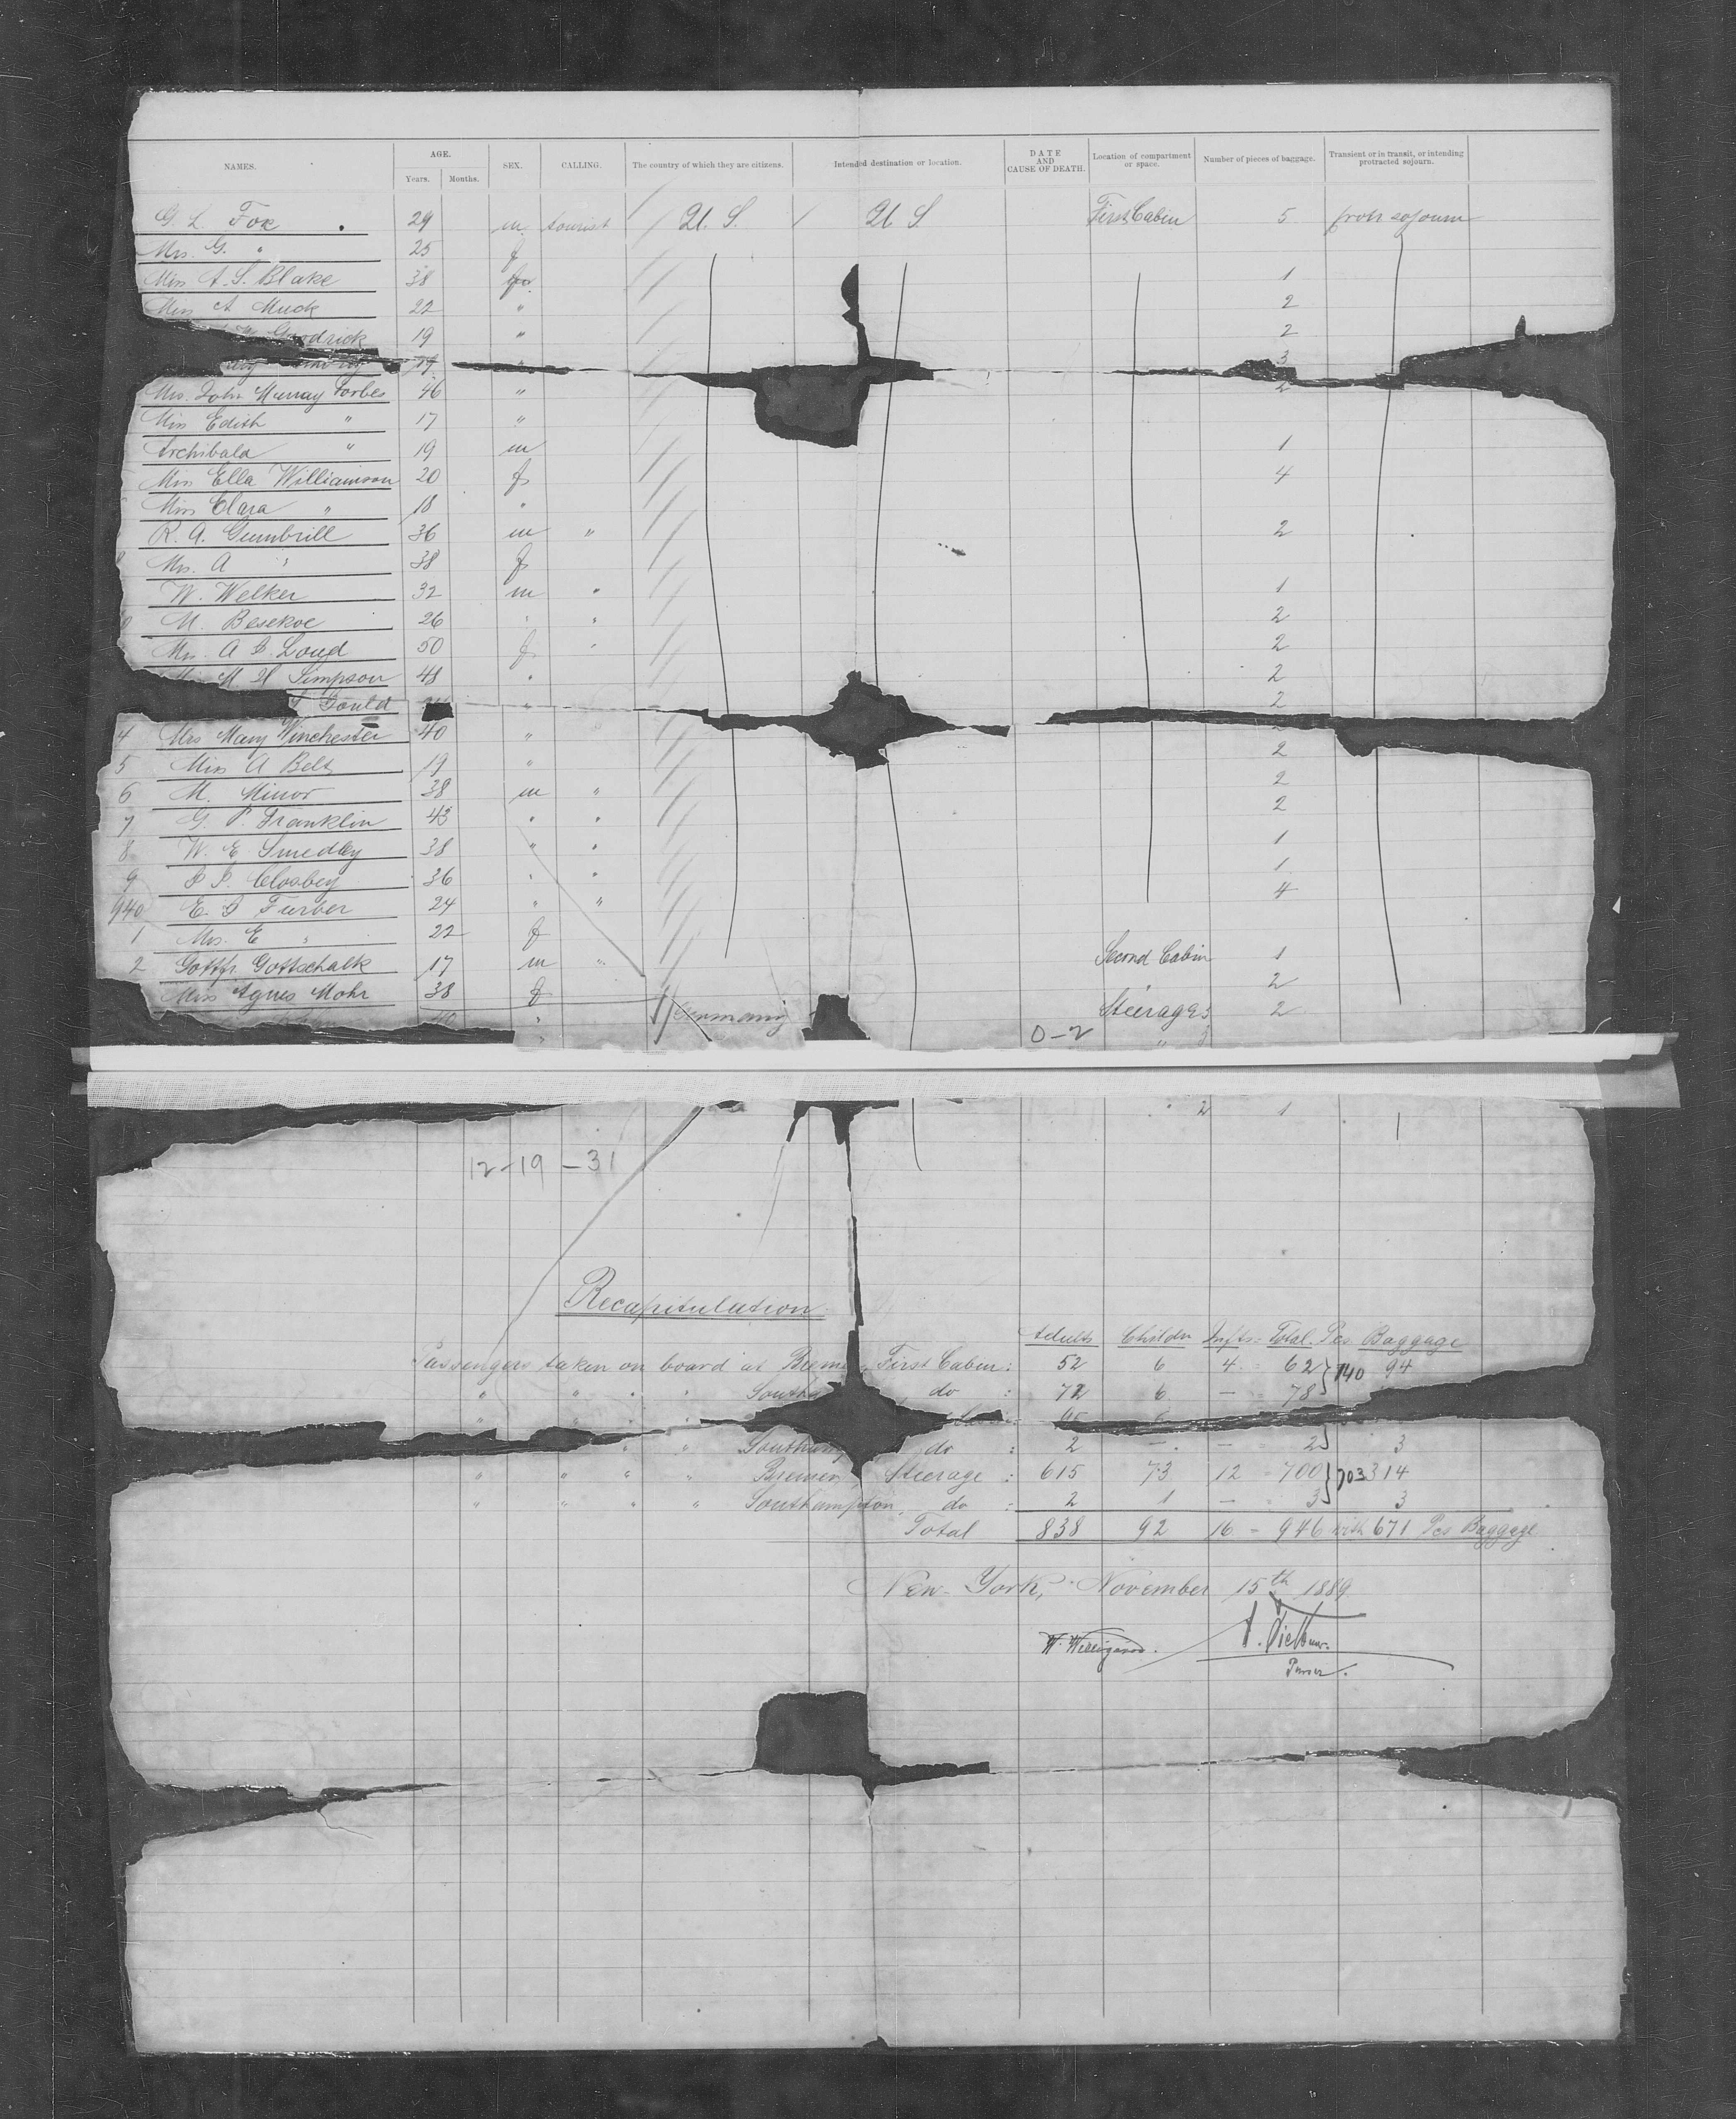 NAMES. AGE. Years. Months. SEX. CALLING. The country of which they are citizens. Intended destination or location. DATE AND CAUSE OF DEATH. Location of compartment or space. Number of pieces of baggage. Transient or in transit, or intending protracted sojourn.
G. L. Fox 29 m tourist / U. S. / U. S. First Cabin 5 protr sojourn
Mrs. G. " 25 f
Miss A. S. Blake 38 1
Miss A Muck 22 " 2
Goodrick 19 " 2
3
Mrs. John Murray Forbes 46 " 2
Miss Edith " 17 "
Archibald " 19 m 1
Miss Ella Williamson 20 f 4
Miss Clara " 18 "
R. A. Gumbrill 36 m " 2
Mrs. A " 38 f
W. Welker 32 m " 1
M. Besekoe 26 " " 2
Mrs. A D. Loud 50 f " 2
M H Simpson 48 " 2
Gould " 2
4 Mrs Mary Winchester 40 "
5 Miss A Belt 19 " 2
6 M. Minor 38 m " 2
7 G. P. Franklin 43 " " 2
8 W. E. Smedley 38 " " 1
9 Closbey 36 " " 1
940 E. D Furber 24 " " 4
1 Mrs. E " 22 f
2 Gottfr. Gottschalk 17 m " Second Cabin 1
Miss Agnes Mohr 38 f 2
40 " Germany Steerage 3 2
0-2 "
" 2 1
12-19-31
Recapitulation
Adults Childn Infts = Total. Pcs Baggage
Passengers taken on board at Breme First Cabin: 52 6 4 = 62 } 140 94
" " " " South do : 72 6 — = 78
Southam do : 2 — — 2 3
" " " " Bremen, Steerage : 615 73 12 = 700 } 703 314
" " " " Southampton, do : 2 1 — 3 3
Total 838 92 16 = 946 with 671 Pcs Baggage
New-York, November 15th 1889
Purser.